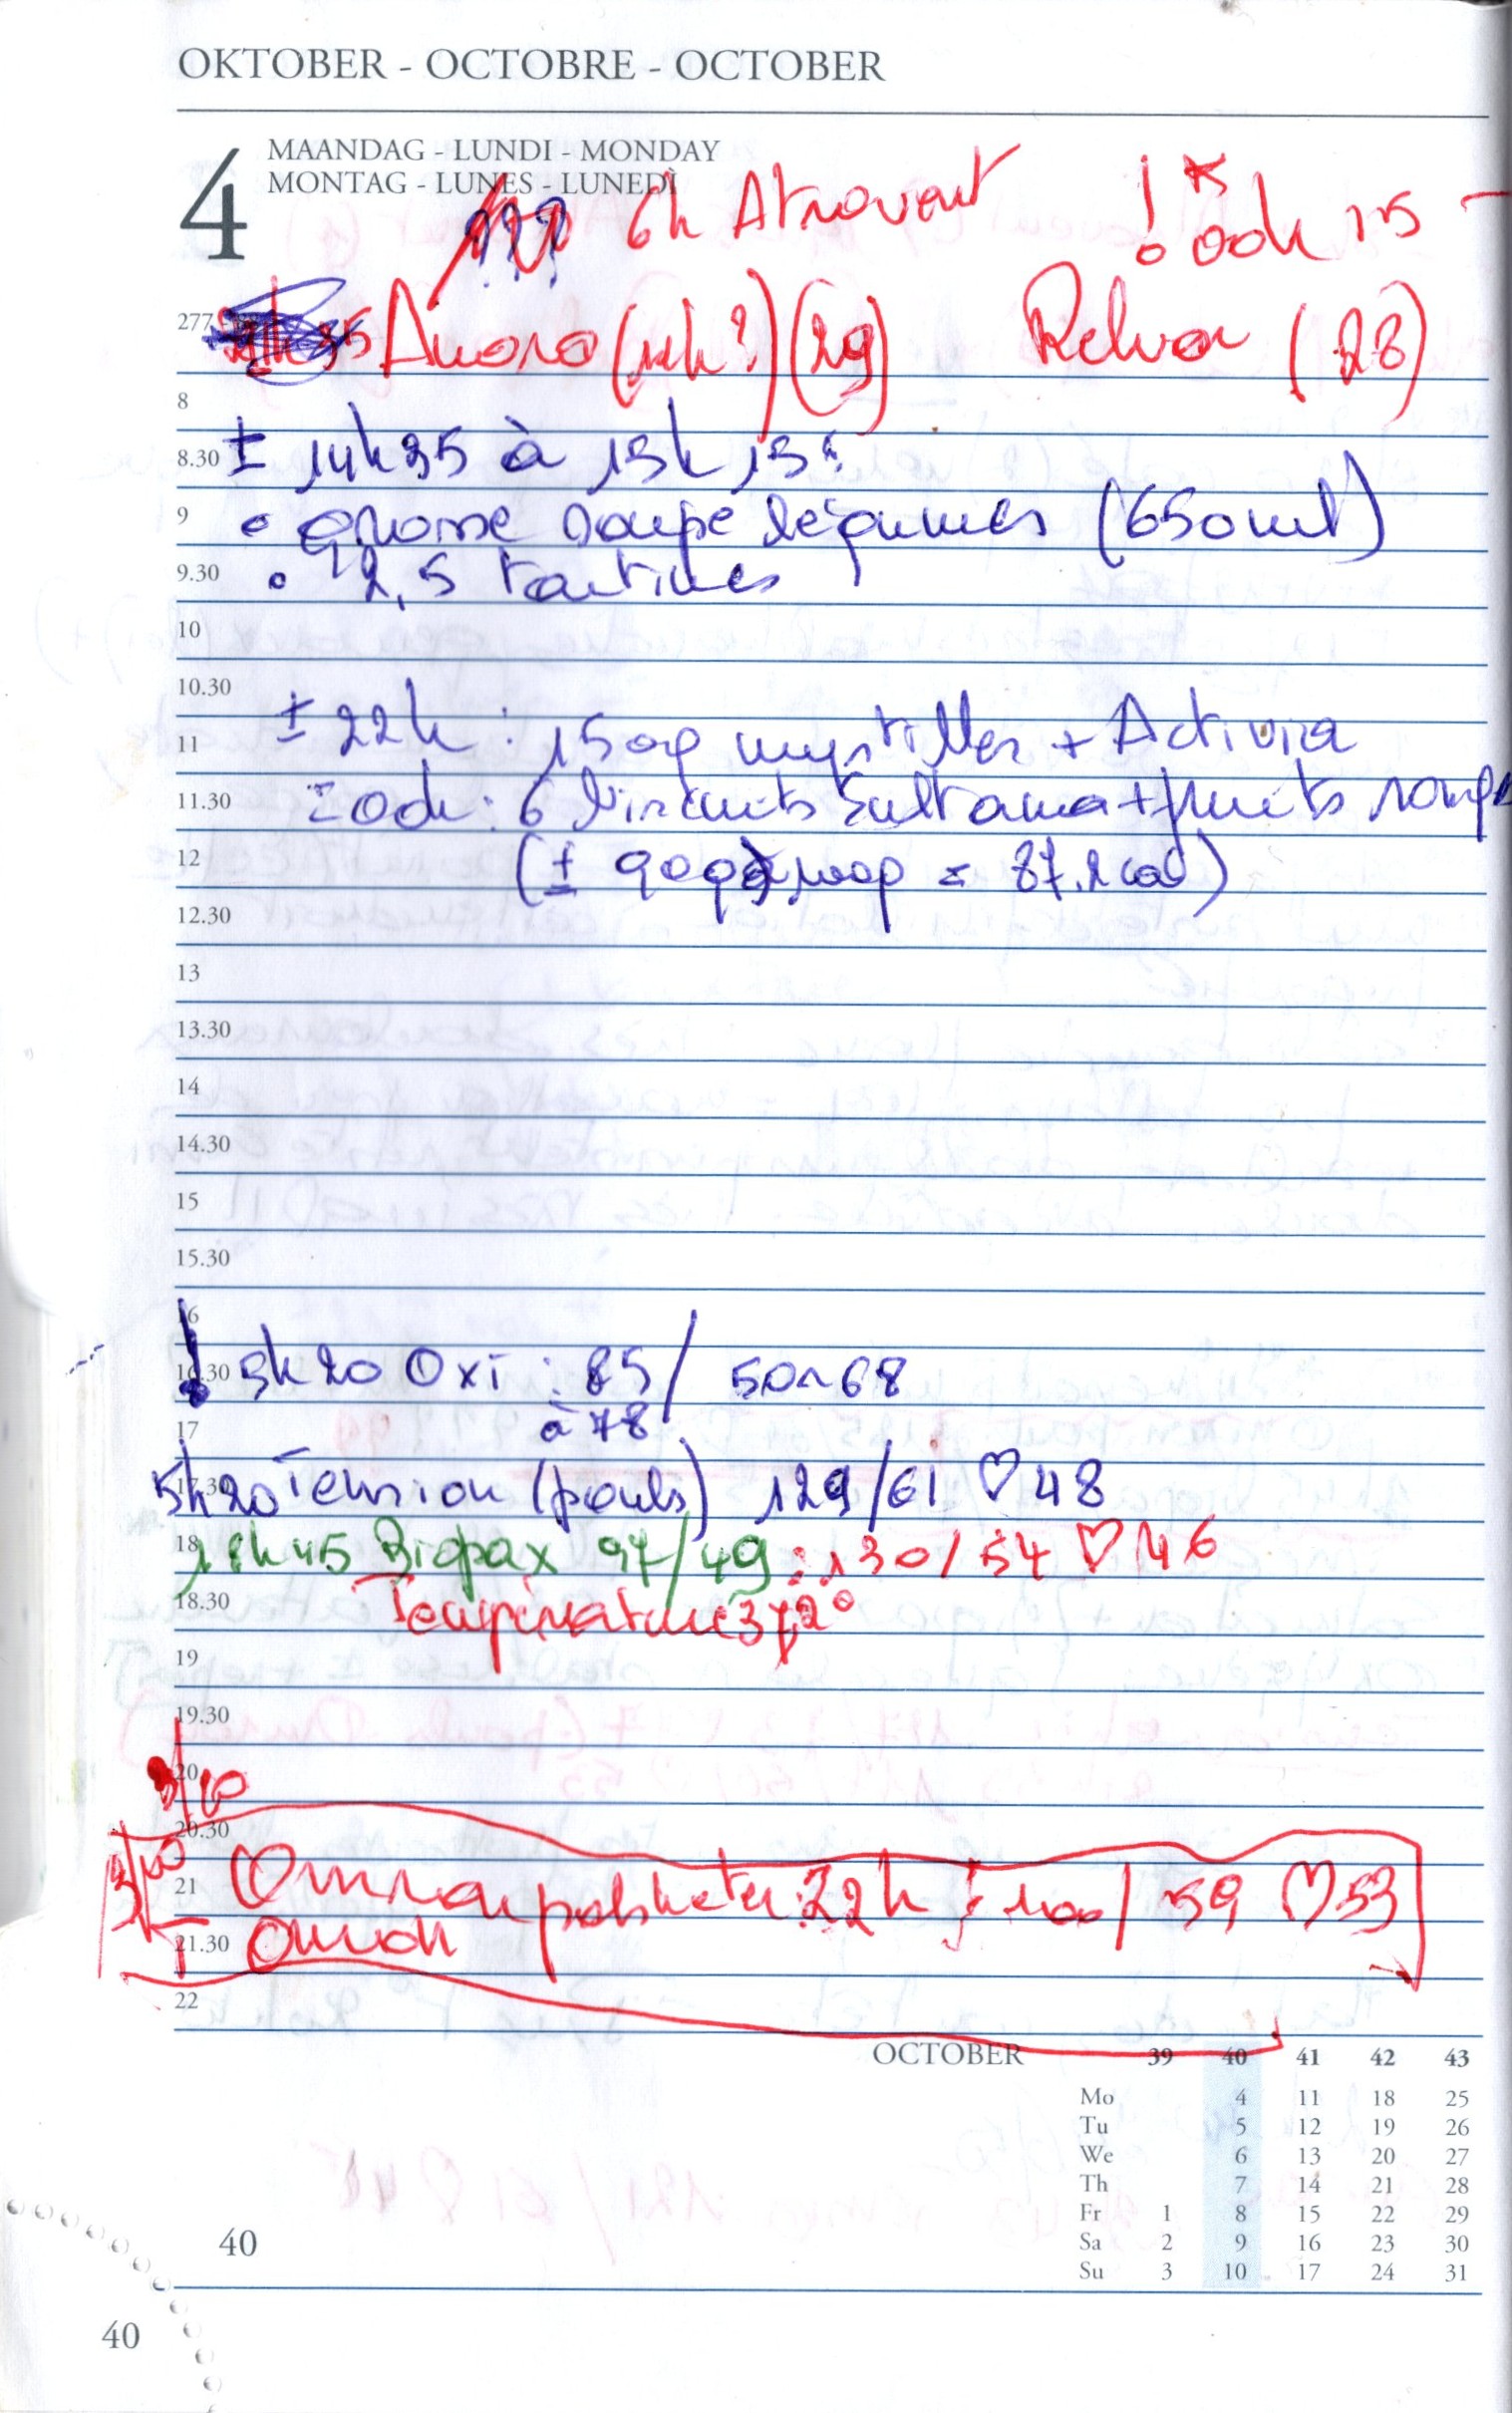 OKTOBER - OCTOBRE - OCTOBER
4
MAANDAG - LUNDI - MONDAY
MONTAG - LUNES - LUNEDÌ
??? 6h Atrovent ! 00h 15 -
277 Anoro (14h?) (29) Relvar (28)
8
8.30 ± 14h35 à 15h15 :
9 • grosse soupe légumes (650ml)
9.30 • 2,5 tartines
10
10.30 ± 22h : 150g myrtilles + Activia
11
11.30 00h : 6 biscuits Sultana + fruits rouges
12 (± 90g
12.30
13
13.30
14
14.30
15
15.30
16
16.30 ! 5h20 Oxi : 85 / 50~68
17 à 78
17.30 5h20 Tension (pouls) 129/61 ♡ 48
18 18h45 Biopax 97/49 : 130/54 ♡ 46
18.30 Température 37,2°
19
19.30
20 3/10
20.30
21 3/10 Omron polsmeter 22h : 100/59 ♡ 53
21.30
22
OCTOBER 39 40 41 42 43
Mo 4 11 18 25
Tu 5 12 19 26
We 6 13 20 27
Th 7 14 21 28
Fr 1 8 15 22 29
Sa 2 9 16 23 30
Su 3 10 17 24 31
40
40